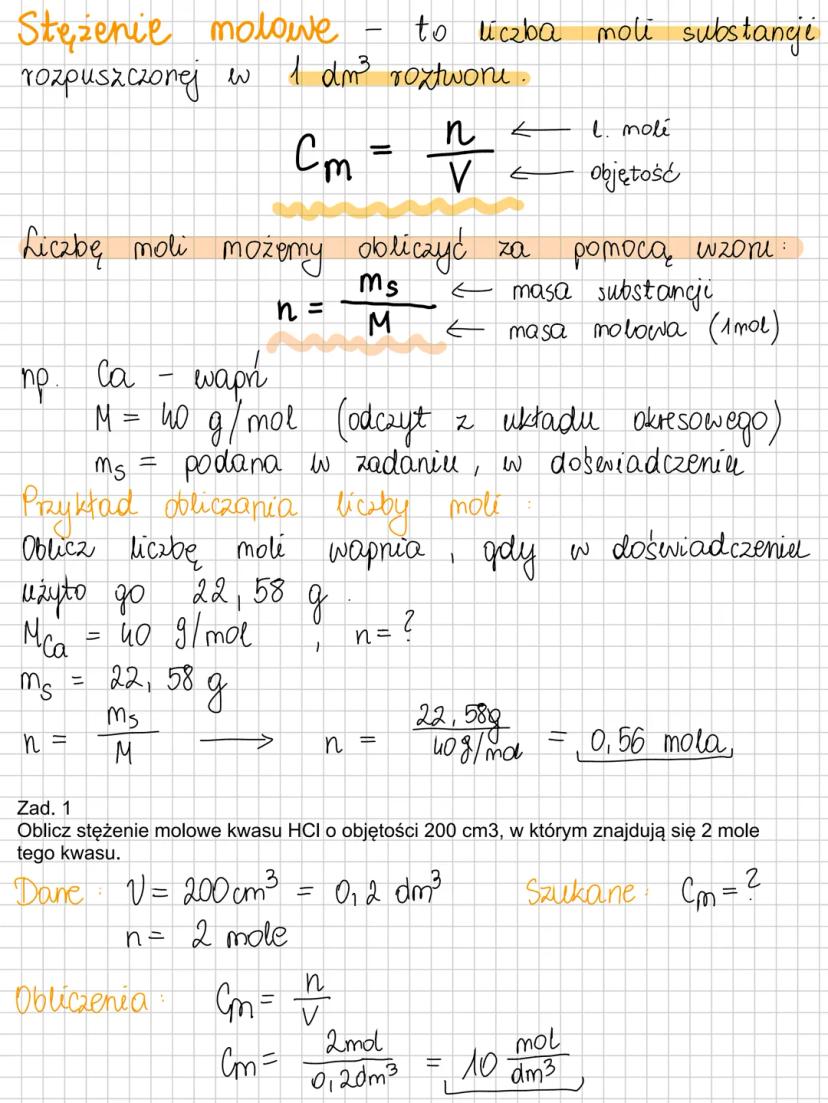 Stężenie molowe - to liczba moli substancji
rozpuszczonej w 1 dm³ roztworu.
Cm = n/V ← l. moli ← objętość
Liczbę moli możemy obliczyć za pomocą wzoru:
n = ms/M ← masa substancji ← masa molowa (1mol)
np. Ca - wapń
M = 40 g/mol (odczyt z układu okresowego)
ms = podana w zadaniu, w doświadczeniu
Przykład obliczania liczby moli:
Oblicz liczbę moli wapnia, gdy w doświadczeniu
użyto go 22,58 g.
MCa = 40 g/mol, n=?
ms = 22,58 g
n = ms/M → n = 22,58g/40g/mol = 0,56 mola
Zad. 1
Oblicz stężenie molowe kwasu HCl o objętości 200 cm3, w którym znajdują się 2 mole
tego kwasu.
Dane: V = 200cm³ = 0,2 dm³ Szukane: Cm=?
n = 2 mole
Obliczenia: Cm = n/V
Cm = 2mol/0,2dm³ = 10 mol/dm³